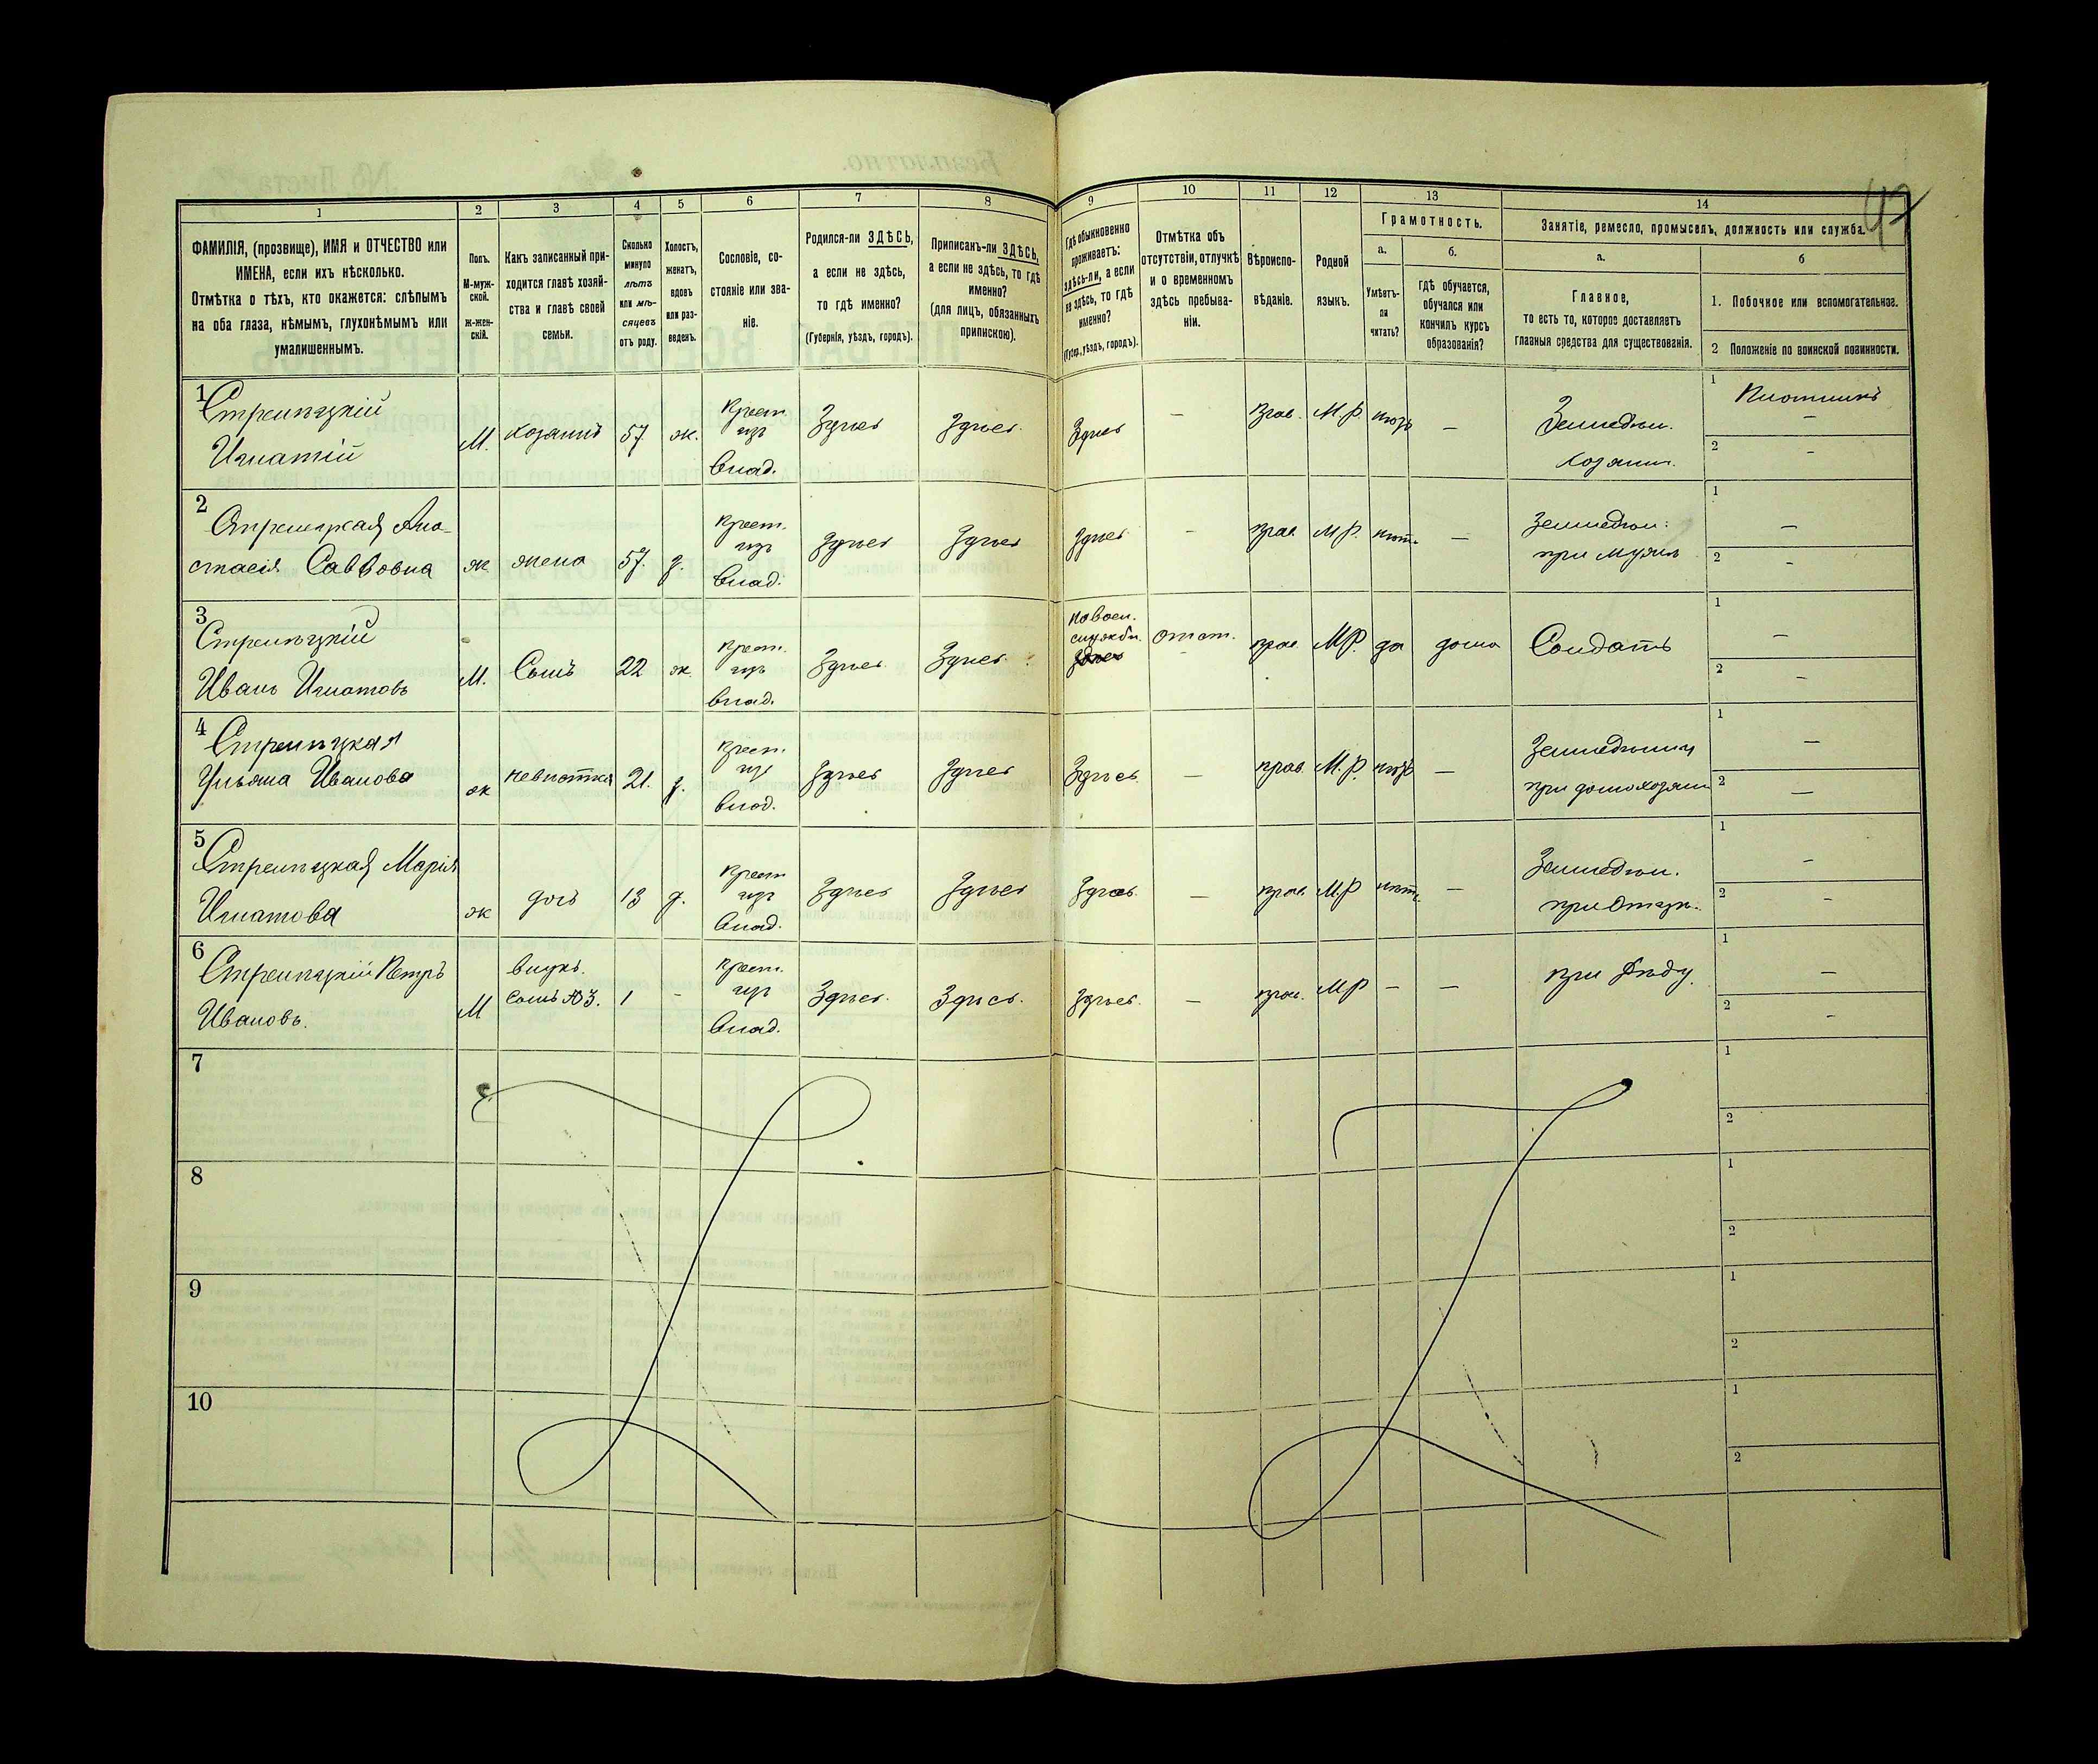 47
1 2 3 4 5 6 7 8 9 10 11 12 13 14
ФАМИЛІЯ, (прозвище), ИМЯ и ОТЧЕСТВО или
ИМЕНА, если ихъ нѣсколько.
Отмѣтка о тѣхъ, кто окажется: слѣпымъ
на оба глаза, нѣмымъ, глухонѣмымъ или
умалишеннымъ.
Полъ.
М-муж-
ской.
Ж-жен-
скій.
Какъ записанный при-
ходится главѣ хозяй-
ства и главѣ своей
семьи.
Сколько
минуло
лѣтъ
или мѣ-
сяцевъ
отъ роду.
Холостъ,
женатъ,
вдовъ
или раз-
веденъ.
Сословіе, со-
стояніе или зва-
ніе.
Родился-ли ЗДѢСЬ,
а если не здѣсь,
то гдѣ именно?
(Губернія, уѣздъ, городъ).
Приписанъ-ли ЗДѢСЬ,
а если не здѣсь, то гдѣ
именно?
(для лицъ, обязанныхъ
припискою).
Гдѣ обыкновенно
проживаетъ:
здѣсь-ли, а если
не здѣсь, то гдѣ
именно?
(Губер., уѣздъ, городъ).
Отмѣтка объ
отсутствіи, отлучкѣ
и о временномъ
здѣсь пребыва-
ніи.
Вѣроиспо-
вѣданіе.
Родной
языкъ.
Грамотность.
а.
Умѣетъ-
ли
читать?
б.
гдѣ обучается,
обучался или
кончилъ курсъ
образованія?
Занятіе, ремесло, промыселъ, должность или служба.
а.
Главное,
то есть то, которое доставляетъ
главныя средства для существованія.
б
1. Побочное или вспомогательное.
2 Положеніе по воинской повинности.
1
Стрелѣцкій
Игнатій
М. хозяинъ 57 ж.
Крест.
изъ
влад.
Здѣсь Здѣсь Здѣсь — Прав. М.Р. нѣтъ —
Земледѣл.
Хозяин.
1 Плотникъ
—
2 -
2
Стрелецкая Ана-
стасія Саввовна
ж жена 57. з.
Крест.
изъ
влад.
Здѣсь Здѣсь Здѣсь - Прав. М.Р. нѣт. —
Земледѣл.
при мужѣ
1 —
2 -
3
Стрелѣцкій
Иванъ Игнатовъ
М. Сынъ 22 ж.
Крест.
изъ
влад.
Здѣсь Здѣсь
на воен.
службѣ.
отст. прав. МР. да дома Солдатъ
1 —
2 -
4
Стрелѣцкая
Ульяна Иванова
ж невѣстка 21. з.
Крест.
изъ
влад.
Здѣсь Здѣсь Здѣсь — прав. М.Р. нѣтъ —
Земледѣлиц
при домохозяин
1 —
2 —
5
Стрелѣцкая Марія
Игнатова
ж дочь 13 д.
Крест
изъ
влад.
Здѣсь Здѣсь Здѣсь — прав. М.Р нѣт. —
Земледѣл.
при Отцѣ.
1 -
2 -
6
Стрелѣцкій Петръ
Ивановъ.
М
внукъ.
сынъ №3.
1 -
Крест.
изъ
влад.
Здѣсь. Здѣсь. Здѣсь. — прав. МР — —
при Дѣду.
1 —
2 -
7
1
2
8
1
2
9
1
2
10
1
2